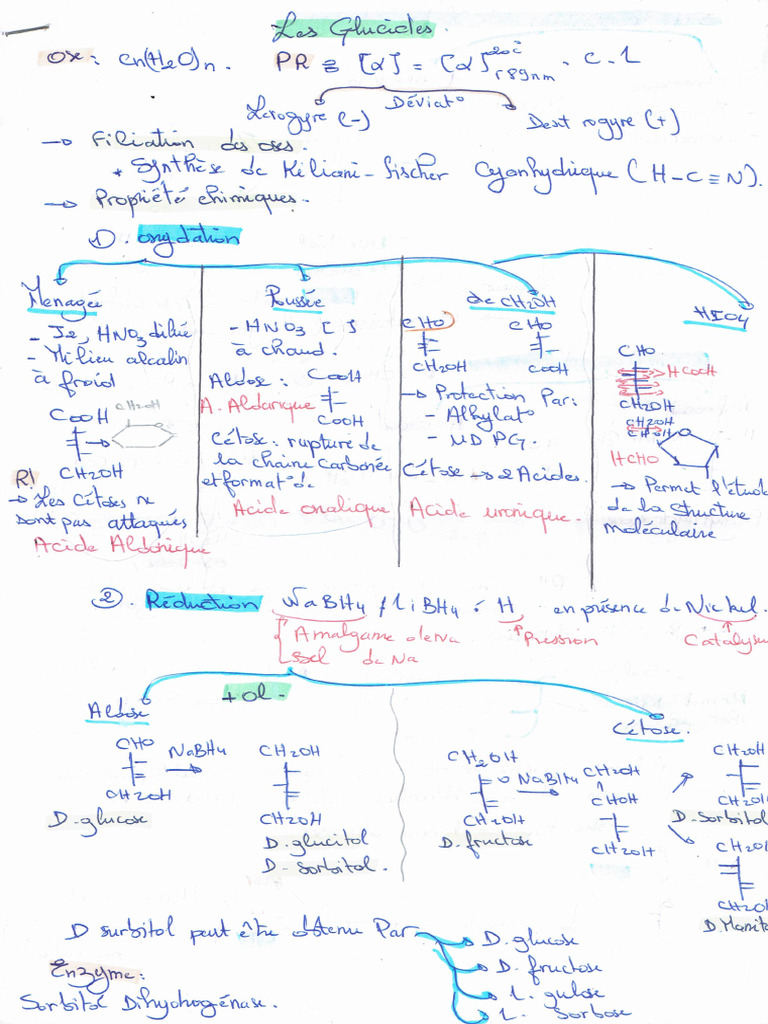 Les Glucides.
Ose : Cn(H2O)n. PR = [α] = [α]20°C 589nm . C . l
Déviat°
Levogyre (-) Dextrogyre (+)
→ Filiation des oses.
* Synthèse de Kiliani-Fischer Cyanhydrique (H-C≡N).
→ Propriété chimiques.
1). oxydation
Menagée
- I2, HNO3 dilué
- Milieu alcalin
à froid
COOH CH2OH
CH2OH
R!
→ Les Cétoses ne
sont pas attaqués
Acide Aldonique
Poussée
- HNO3 [ ]
à chaud.
Aldose : COOH
A. Aldarique
COOH
Cétose : rupture de
la chaine Carbonée
et format° de
Acide oxalique
de CH2OH
CHO CHO
CH2OH COOH
→ Protection Par :
- Alkylat°
- NDPG.
Cétose → 2 Acides.
Acide uronique.
HIO4
CHO
HCOOH
CH2OH
CH2OH
HCHO
→ Permet l'étude
de la structure
moléculaire
2). Réduction NaBH4 / LiBH4 : H en présence de Nickel.
Amalgame de Na Pression Catalyseu
sel de Na
+ ol -
Aldose Cétose.
CHO NaBH4 CH2OH
CH2OH CH2OH
D-glucose
D-glucitol
D-sorbitol.
CH2OH O NaBH4 CH2OH CH2OH
CHOH
CH2OH CH2OH CH2OH
D-fructose D-Sorbitol
CH2OH
CH2OH
D.Manit
D sorbitol peut être obtenu Par D.glucose
D.fructose
L.gulose
L.Sorbose
Enzyme :
Sorbitol Dihydrogénase.